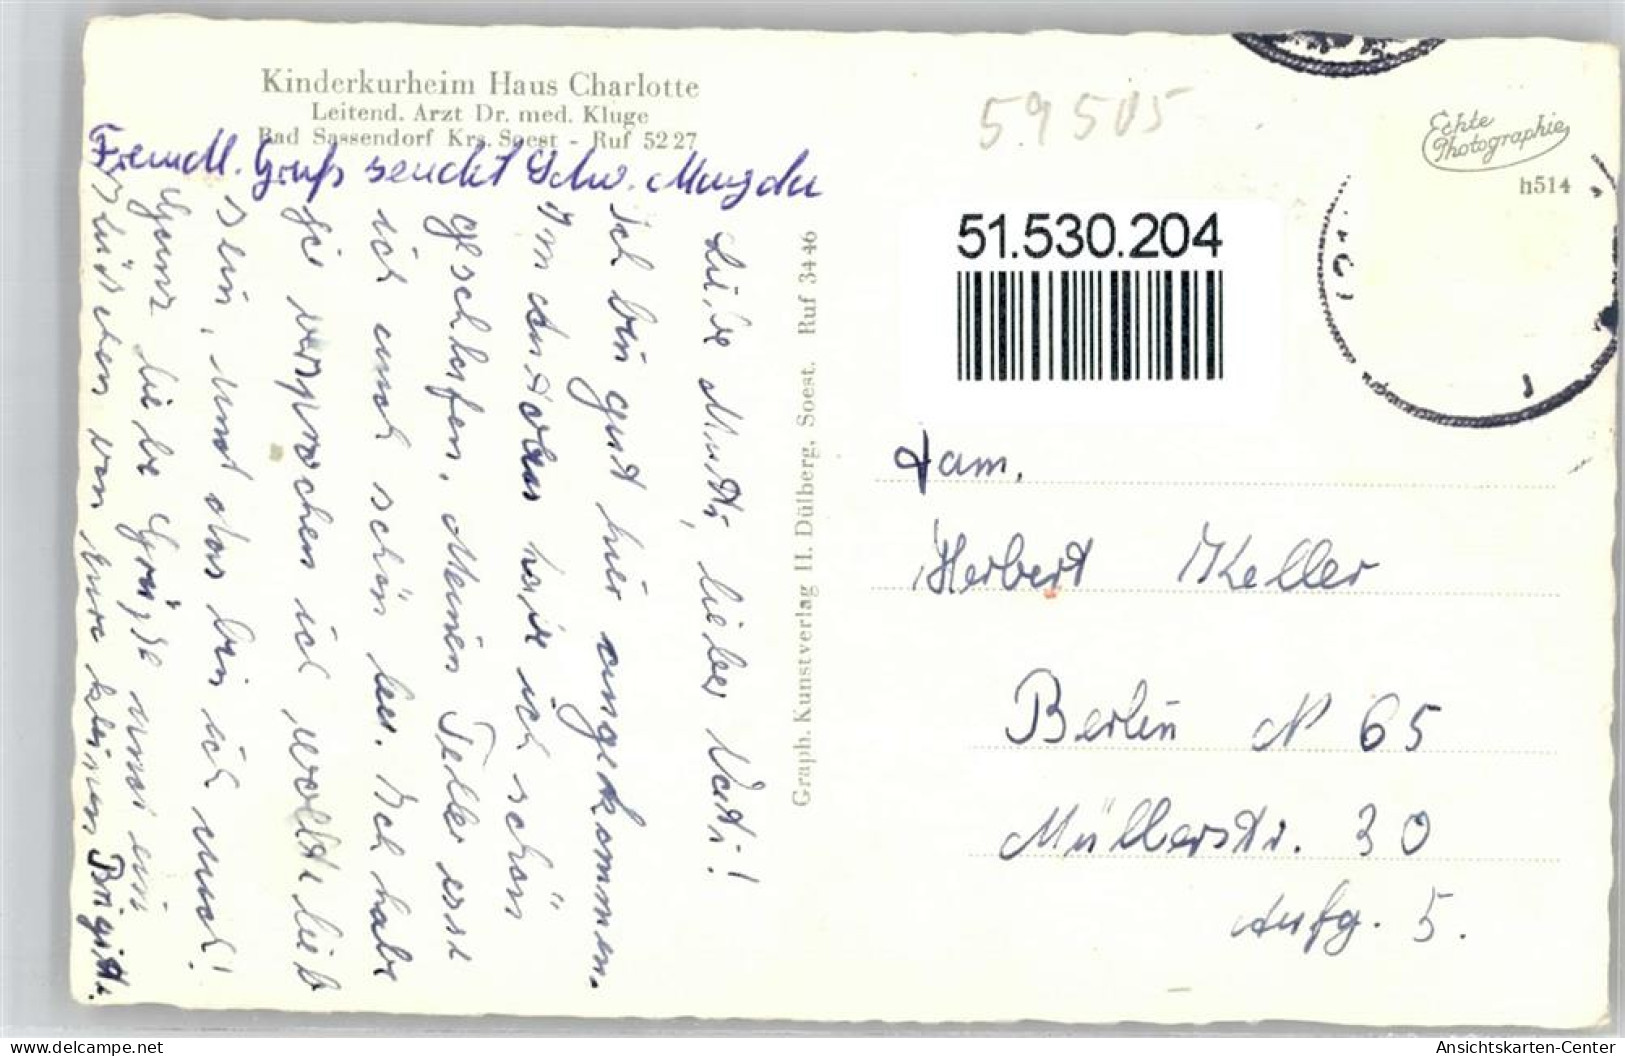 Kinderkurheim Haus Charlotte
Leitend. Arzt Dr. med. Kluge
Bad Sassendorf Krs. Soest - Ruf 52 27
Freundl. Gruß sendet Schw. Magda
Liebe Mutti, lieber Vati!
Ich bin gut hier angekommen.
Im Auto habe ich schön
geschlafen. Meinen Teller esse
ich auch schön leer. Ich habe
ja versprochen ich wollte lieb
sein, und das bin ich auch!
Ganz liebe Grüße und ein
Küsschen von Eure kleinen Brigitte.
Graph. Kunstverlag H. Dülberg, Soest. Ruf 3446
59505
Echte
Photographie
h514
51.530.204
Fam.
Herbert Keller
Berlin N 65
Müllerstr. 30
Aufg. 5.
delcampe.net
Ansichtskarten-Center